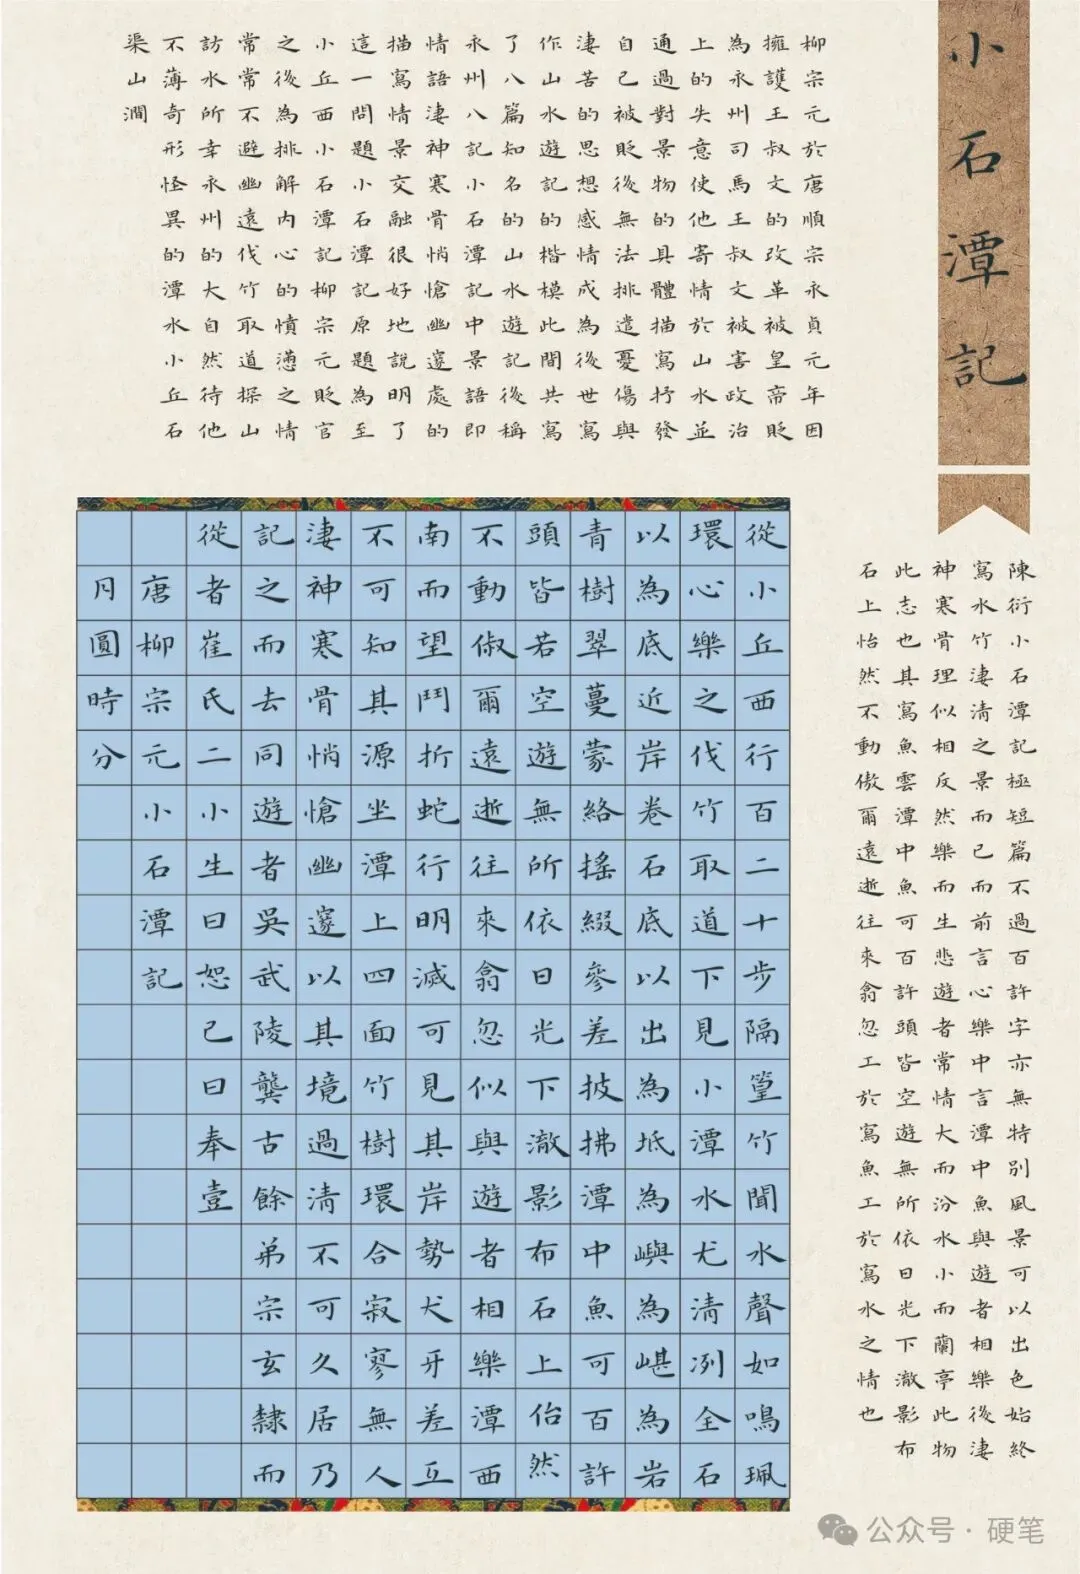 小石潭記
柳宗元於唐順宗永貞元年因
擁護王叔文的改革被皇帝貶
為永州司馬王叔文被害政治
上的失意使他寄情於山水並
通過對景物的具體描寫抒發
自己被貶後無法排遣憂傷與
淒苦的思想感情成為後世寫
作山水遊記的楷模此間共寫
了八篇知名的山水遊記後稱
永州八記小石潭記中景語即
情語淒神寒骨悄愴幽邃處的
描寫情景交融很好地說明了
這一問題小石潭記原題為至
小丘西小石潭記柳宗元貶官
之後為排解內心的憤懣之情
常常不避幽遠伐竹取道探山
訪水所幸永州的大自然待他
不薄奇形怪異的潭水小丘石
渠山澗
陳衍小石潭記極短篇不過百許字亦無特別風景可以出色始終
寫水竹淒清之景而已而前言心樂中言潭中魚與遊者相樂後淒
神寒骨理似相反然樂而生悲遊者常情大而汾水小而蘭亭此物
此志也其寫魚雲潭中魚可百許頭皆空遊無所依日光下澈影布
石上怡然不動傲爾遠逝往來翕忽工於寫魚工於寫水之情也
從小丘西行百二十步隔篁竹聞水聲如鳴珮
環心樂之伐竹取道下見小潭水尤清冽全石
以為底近岸卷石底以出為坻為嶼為嵁為岩
青樹翠蔓蒙絡搖綴參差披拂潭中魚可百許
頭皆若空遊無所依日光下澈影布石上佁然
不動俶爾遠逝往來翕忽似與遊者相樂潭西
南而望鬥折蛇行明滅可見其岸勢犬牙差互
不可知其源坐潭上四面竹樹環合寂寥無人
淒神寒骨悄愴幽邃以其境過清不可久居乃
記之而去同遊者吳武陵龔古餘弟宗玄隸而
從者崔氏二小生曰恕己曰奉壹
唐柳宗元小石潭記
月圓時分
公众号·硬笔